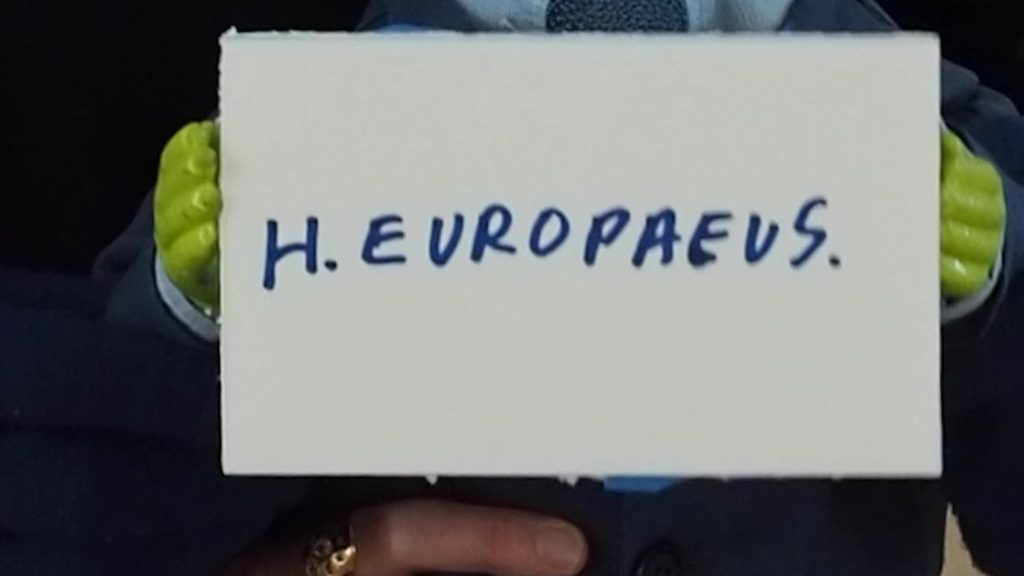 H. EUROPAEUS.